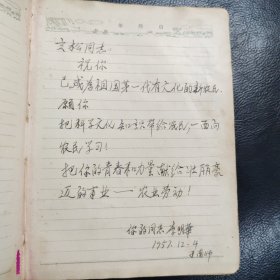 同志：
祝你
已成为祖国第一代有文化的新农民
愿你
把科学文化知识带给农民，一面向
农民学习！
把你的青春和力量献给壮丽豪
迈的事业——农业劳动！
你的同志
1957.12.4